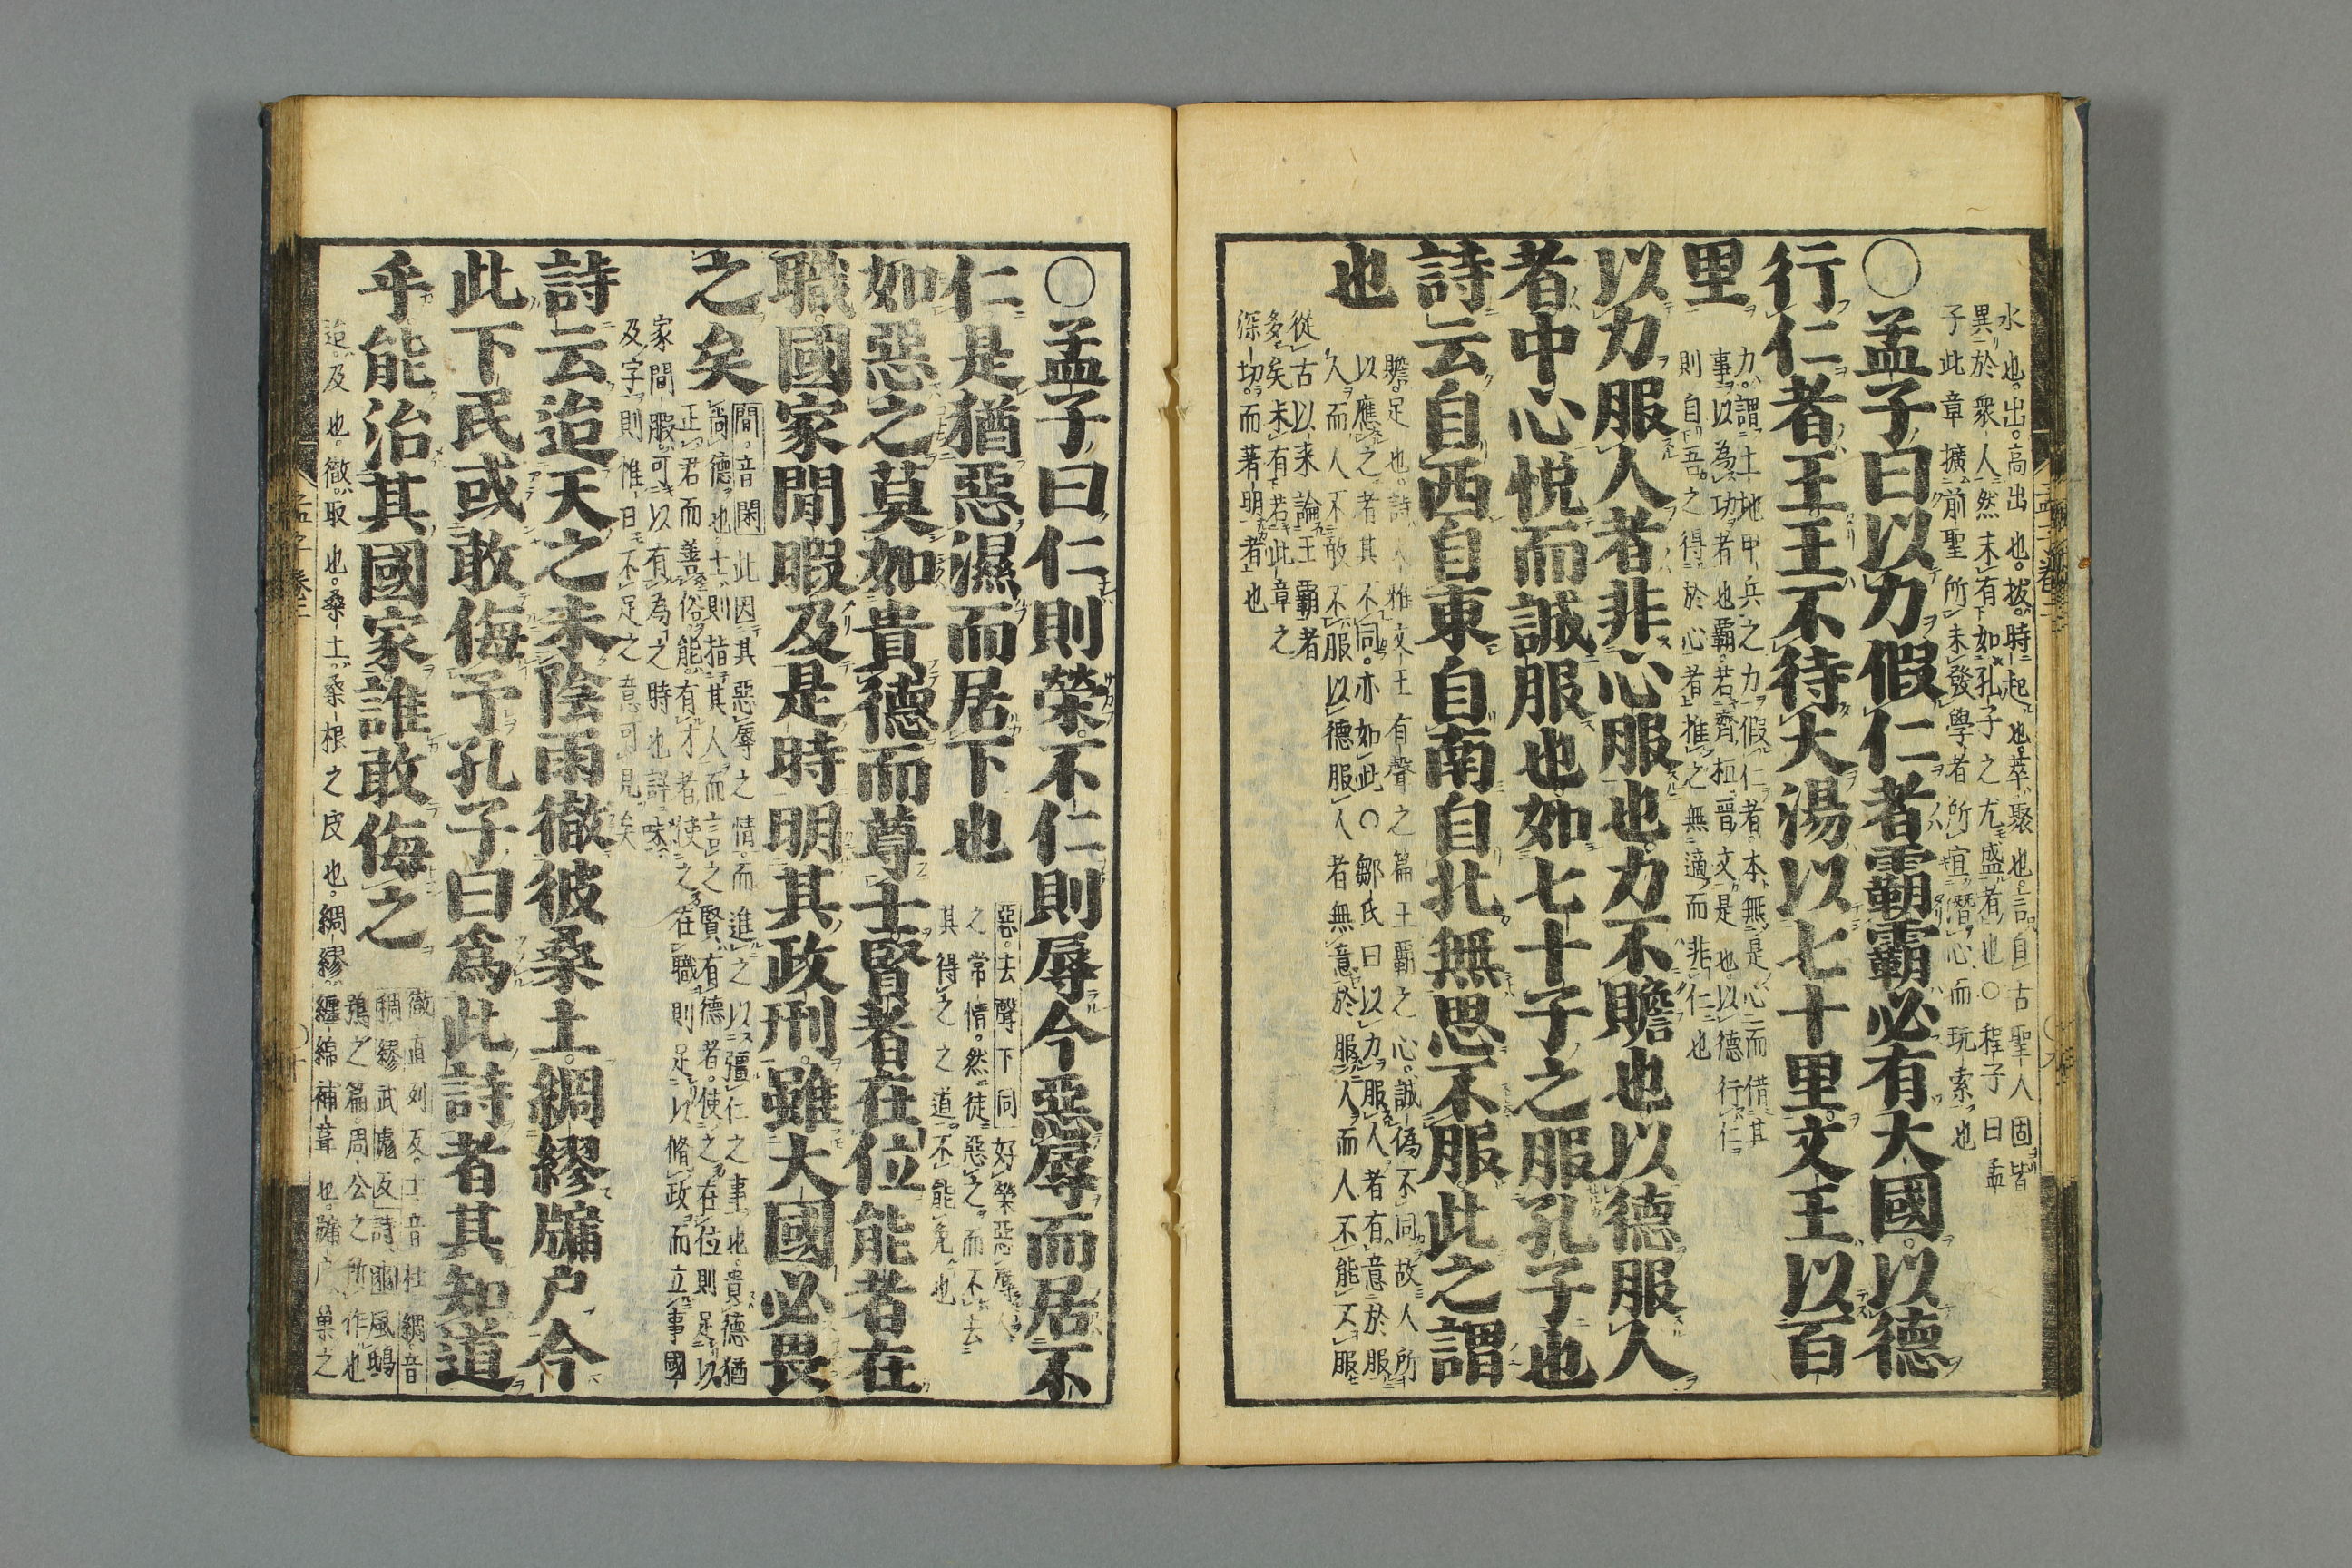 水也。出。高出也。拔。時起也。萃。聚也。言自古聖人固皆
異於衆人然未有如孔子之尤盛者也○程子曰孟
子此章擴前聖所未發學者所宜潛心而玩索也
○孟子曰以力假仁者霸霸必有大國。以德
行仁者王王不待大湯以七十里。文王以百
里
力。謂土地甲兵之力。假仁者。本無是心而借其
事。以為功者也霸。若齊桓晉文是也以德行仁。
則自吾之得於心者推之無適而非仁也
以力服人者非心服也。力不贍也以德服人
者中心悦而誠服也。如七十子之服孔子也
詩云自西自東自南自北無思不服。此之謂
也
贍。足也。詩大雅文王有聲之篇王霸之心。誠偽不同故人所
以應之者其不同。亦如此○鄒氏曰以力服人者有意於服
人而人不敢不服以德服人者無意於服人而人不能不服
從古以来論王霸者
多矣未有若此章之
深切。而著明者也
○孟子曰仁則榮。不仁則辱今惡辱而居不
仁是猶惡濕而居下也
惡。去聲下同好榮惡辱人
之常情。然徒惡之。而不去
其得之之道。不能免也
如惡之莫如貴德而尊士。賢者在位能者在
職。國家閒暇及是時明其政刑。雖大國必畏
之矣
閒。音閑此因其惡辱之情。而進之以彊仁之事也。貴德猶
尚德也。士。則指其人而言之賢。有德者。使之在位則足以
正君而善俗。能。有才者使之在職。則足以脩政而立事國
家閒暇。可以有為之時也詳味。
及字則惟日不足之意可見矣
詩云迨天之未陰雨徹彼桑土。綢繆牖户今
此下民或敢侮予孔子曰為此詩者其知道
乎能治其國家。誰敢侮之
徹直列反。土音杜綢音
稠繆武彪反詩豳風鴟
鴞之篇。周公之所作也
迨。及也。徹。取也。桑土。桑根之皮也。綢繆。纏綿補葺也。牖户巢之
孟子卷二